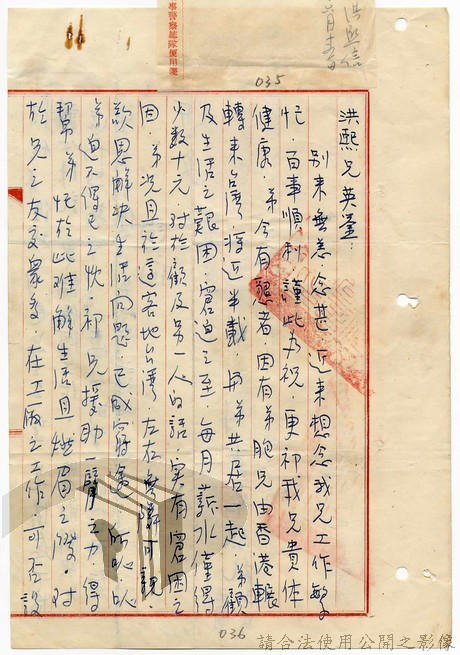 事警察總隊便用箋
洪熙信
035
洪熙兄英鑒：
別來無恙念甚．近來想念我兄工作繁
忙．百事順利謹此為祝．更祁我兄貴体
健康．弟今有懇者因有弟胞兄由香港輾
轉來台灣．將近半載．另弟共居一起 弟顧
及生活之艱困．窘迫之至．每月薪水僅得
少数十元．对於顧及另一人的話．实有窘困之
因．弟况且於這客地台灣．左右無親可說．
欲思解决生活问題．已成窘迫 所以
弟迫不得已之忱．祁兄援助一臂之力．得
幫弟忙於此难解生活且燃眉之際．对
於兄之友交衆多．在工廠之工作．可否設
036
請合法使用公開之影像